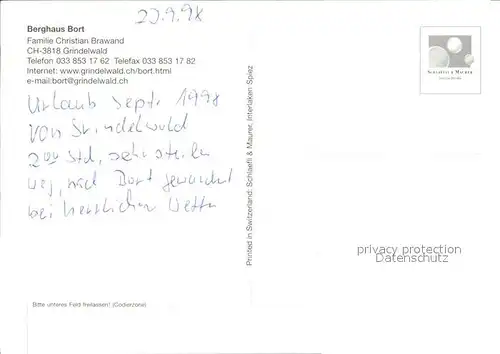 23.9.98
Berghaus Bort
Familie Christian Brawand
CH-3818 Grindelwald
Telefon 033 853 17 62 Telefax 033 853 17 82
Internet: www.grindelwald.ch/bort.html
e-mail:bort@grindelwald.ch
Urlaub Sept. 1998
von Grindelwald
2 Std, sehr steilen
Weg, nach Bort gewandert
bei herrlichem Wetter
Bitte unteres Feld freilassen! (Codierzone)
Printed in Switzerland: Schlaefli & Maurer, Interlaken Spiez
SCHLAEFLI & MAURER
privacy protection
Datenschutz